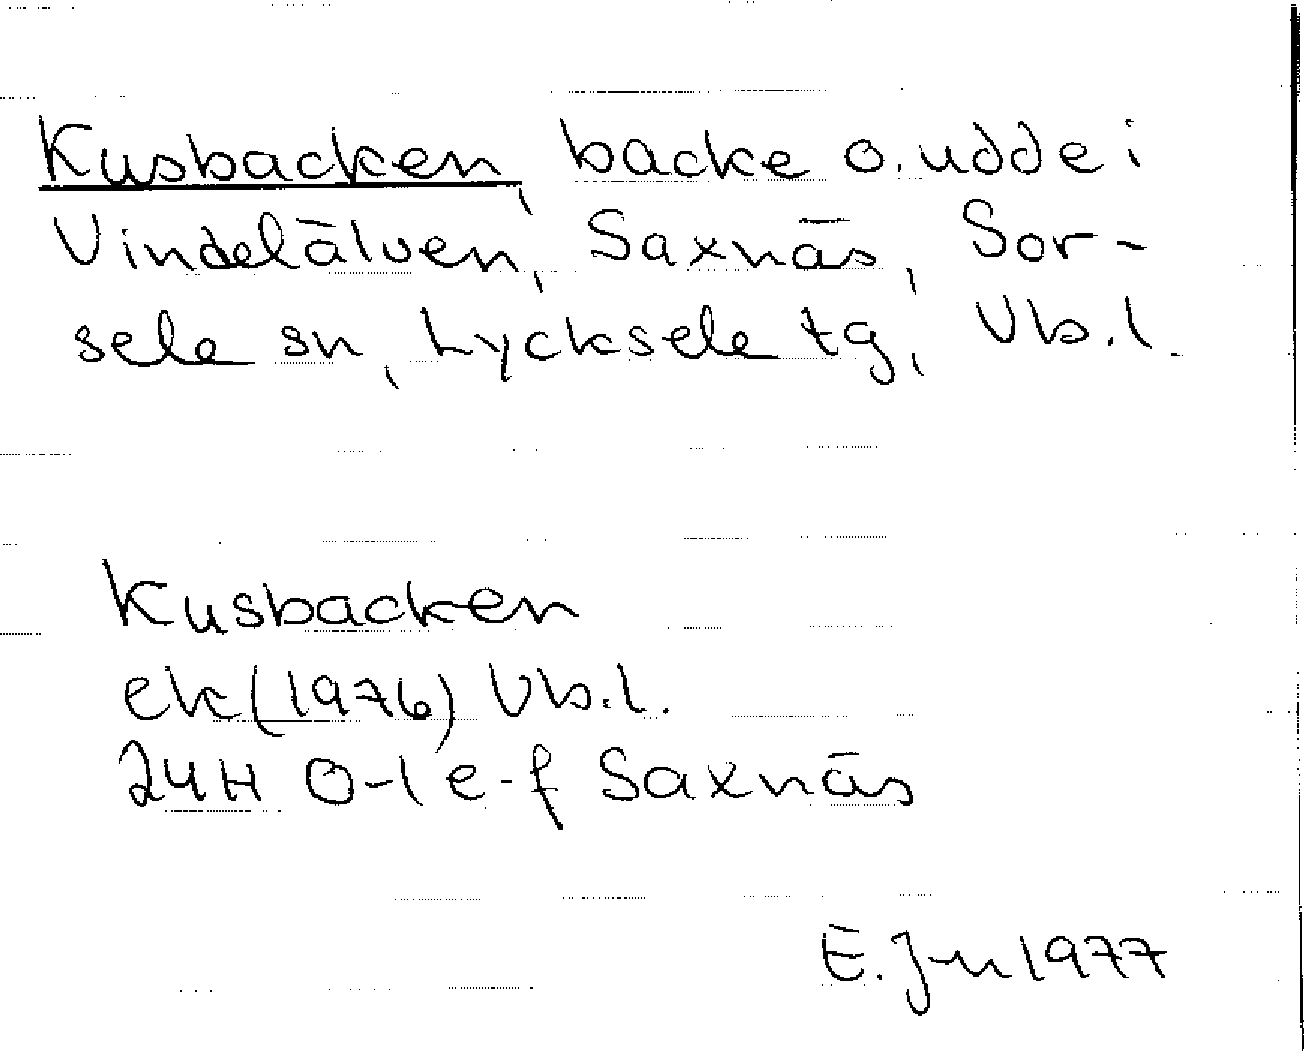 Kusbacken, backe o. udde i
Vindelälven, Saxnäs, Sor-
sele sn, Lycksele tg, Vb.l.
Kusbacken
ek (1976) Vb.l.
24H 0-1 e-f Saxnäs
E. J-n 1977